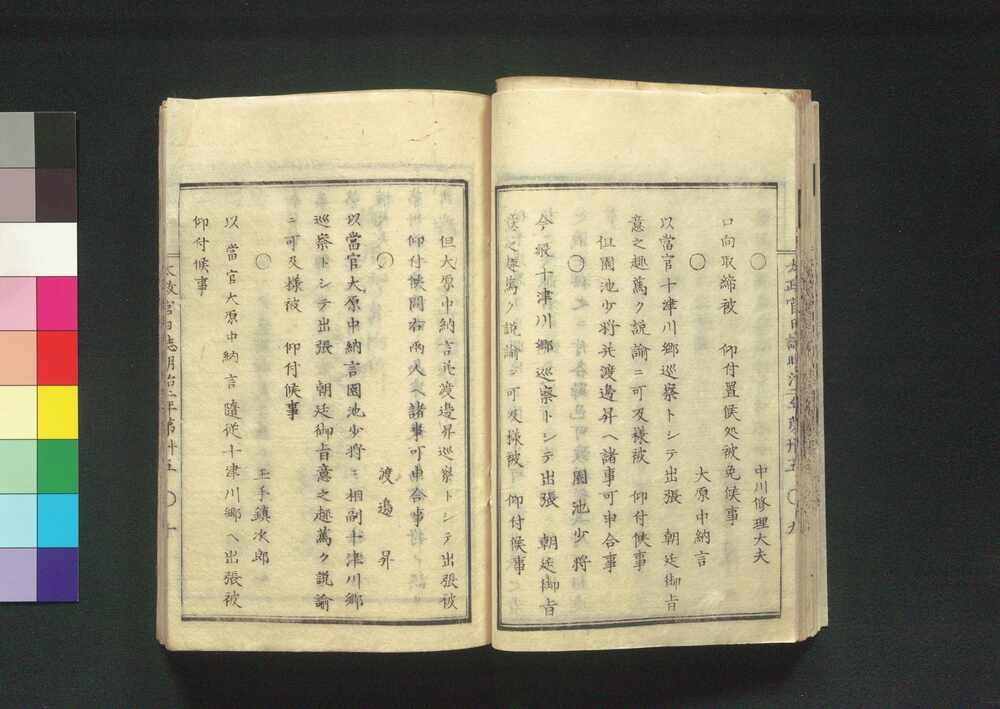 ○　中川修理大夫
口向取締被　仰付置候処被免候事
○　大原中納言
以當官十津川郷巡察トシテ出張　朝廷御旨
意之趣篤ク説諭ニ可及様被　仰付候事
但園池少将并渡邊昇ヘ諸事可申合事
○　園池少将
今般十津川郷巡察トシテ出張　朝廷御旨
意之趣篤ク説諭可及様被　仰付候事
但大原中納言并渡邊昇巡察トシテ出張被
仰付候間右両人ヘ諸事可申合事
○　渡邊昇
以當官大原中納言園池少将ニ相副十津川郷
巡察トシテ出張　朝廷御旨意之趣篤ク説諭
ニ可及様被　仰付候事
○　玉手鎮次郎
以　當官大原中納言隨従十津川郷ヘ出張被
仰付候事
太政官日誌明治二年第卅五　○　九
太政官日誌明治二年第卅五　○　十